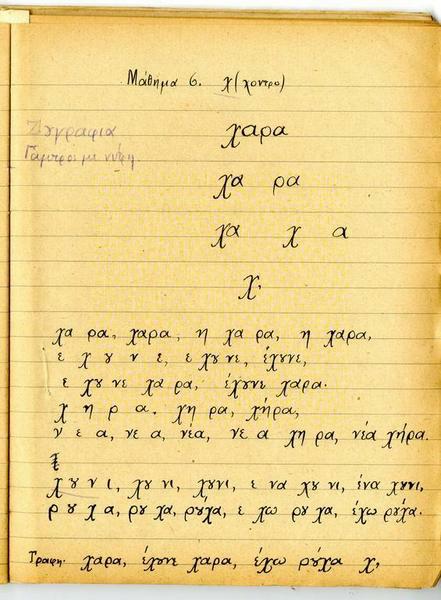 Μάθημα 6. χ (χοντρο)
χαρα
Ζωγραφια
Γαμπροι με νύφη.
χα ρα
χα χ α
χ,
χα ρα, χαρα, η χα ρα, η χαρα,
ε χ ȣ ν ε, ε χȣ νε, έχȣνε,
ε χȣ νε χα ρα, έχȣνε χαρα.
χ η ρ α. χη ρα, χήρα,
ν ε α, νε α, νέα, νε α χη ρα, νέα χήρα.
χ ȣ ν ι, χȣ νι, χȣνι, ε να χȣ νι, ένα χȣνι,
ρ ȣ χ α, ρȣ χα, ρȣ́χα, ε χω ρȣ χα, έχω ρȣ́χα.
Γραφη. χαρα, έχȣνε χαρα, έχω ρȣ́χα χ,